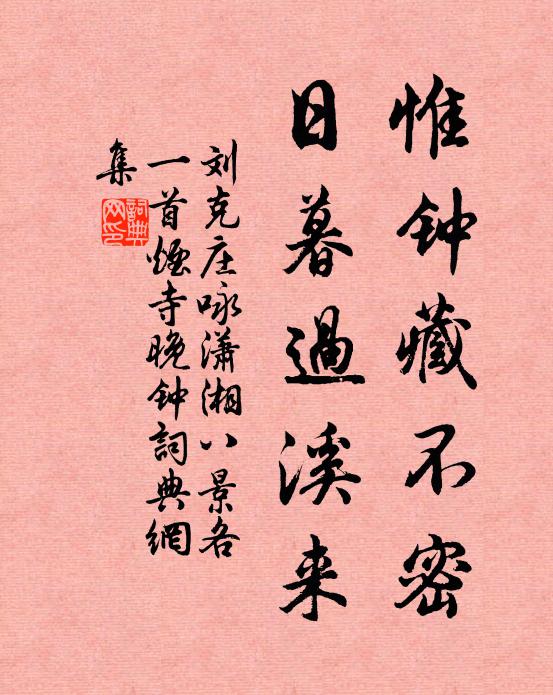 惟钟藏不密
日暮過溪来
刘克庄咏潇湘八景各
一首烟寺晚钟詞典網
集
詞典
网印